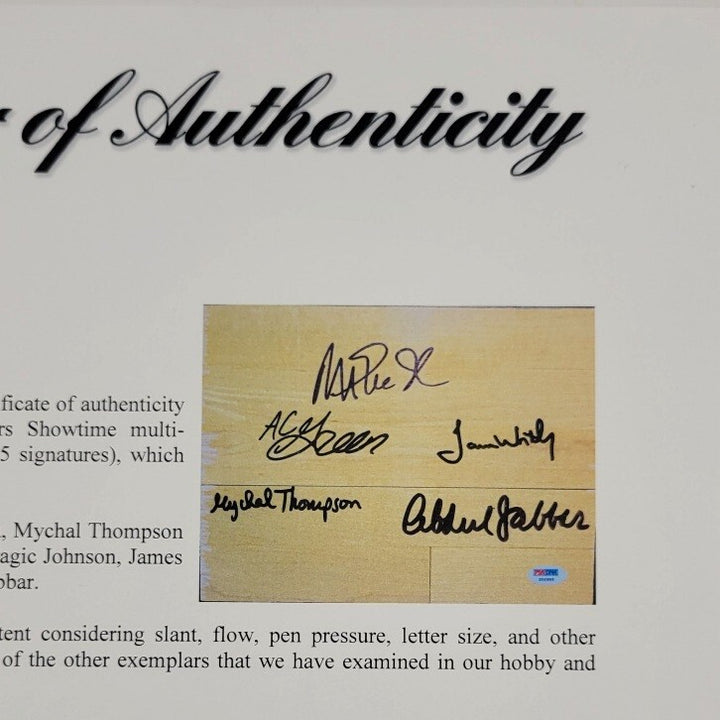 of Authenticity
ficate of authenticity
rs Showtime multi-
5 signatures), which
Mychal Thompson
agic Johnson, James
bbar.
tent considering slant, flow, pen pressure, letter size, and other
of the other exemplars that we have examined in our hobby and
AC Green
Mychal Thompson
Abdul Jabbar
PSA/DNA